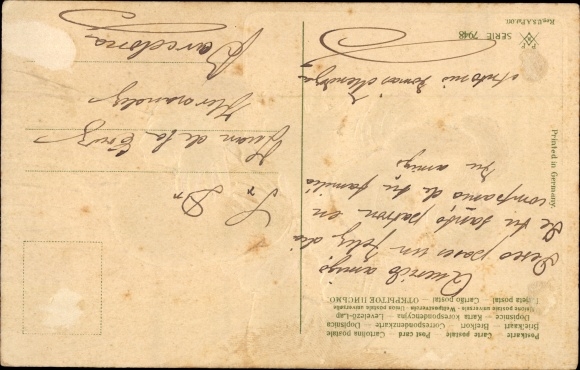 Postkarte Carte postale - Post card - Cartolina postale
Briefkaart Brefkort - Correspondenzkarte Dopisnica
Dopisnice - Karta korespondencyjna - Levelező-Lap
Unione postale universale - Weltpostverein - Union postale universelle
Tarjeta postal Cartão postal ОТКРЫТОЕ ПИСЬМО
Querido amigo
Deseo pases un feliz dia
de tu santo patron en
compania de tu familia
tu amigo
Antonio
Sr Dn
Juan de la Cruz
Hernandez
Barcelona
Printed in Germany.
SERIE 7948
Reg. U.S.A Pat. Off.